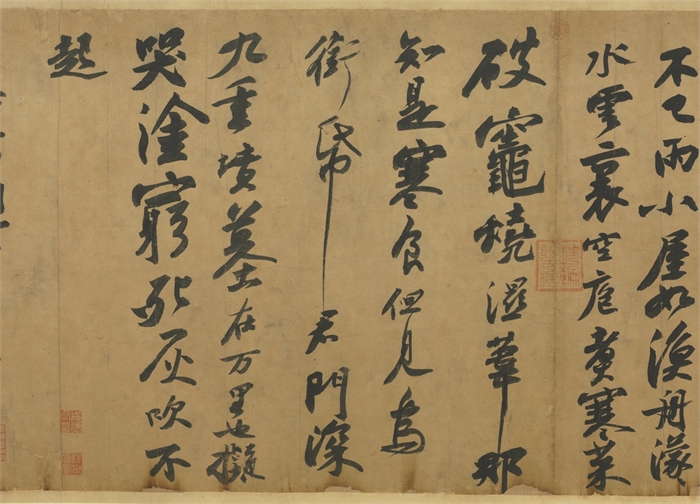 不已雨小屋如漁舟濛〻
水雲裏空庖煮寒菜
破竈燒濕葦那
知是寒食但見烏
銜帋君門深
九重墳墓在万里也擬
哭塗窮死灰吹不
起